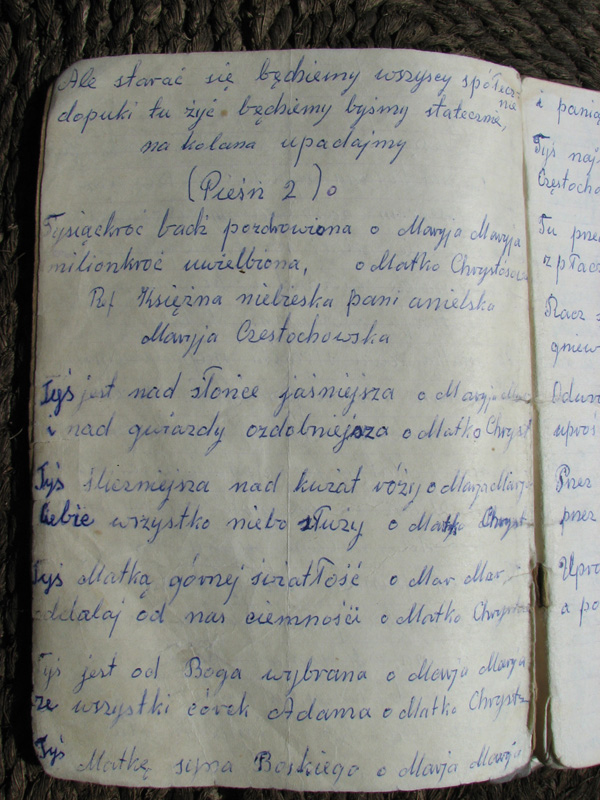 Ale starać się będziemy wszyscy społecznie
dopuki tu żyć będziemy byśmy statecznie,
na kolana upadajmy
(Pieśń 2)o
Tysiąckroć bądź pozdrowiona o Maryja Maryja
milionkroć uwielbiona, o Matko
Rf Księżna niebieska pani anielska
Maryja Częstochowska
Tyś jest nad słońce jaśniejsza o Maryja
i nad gwiazdy ozdobniejsza o Matko Chryst
Tyś śliczniejsza nad kwiat róży o Maryja Maryja
Ciebie wszystko niebo służy o Matko Chryst
Tyś Matką górnej światłość o Mar Mar
oddalaj od nas ciemności o Matko
Tyś jest od Boga wybrana o Marja Maryja
ze wszystki córek Adama o Matko Chryst
Tyś Matkę syna Boskiego o Marja Maryja
i
Tyś
Tu
Racz
gniew
uproś
Przez
przez
a po